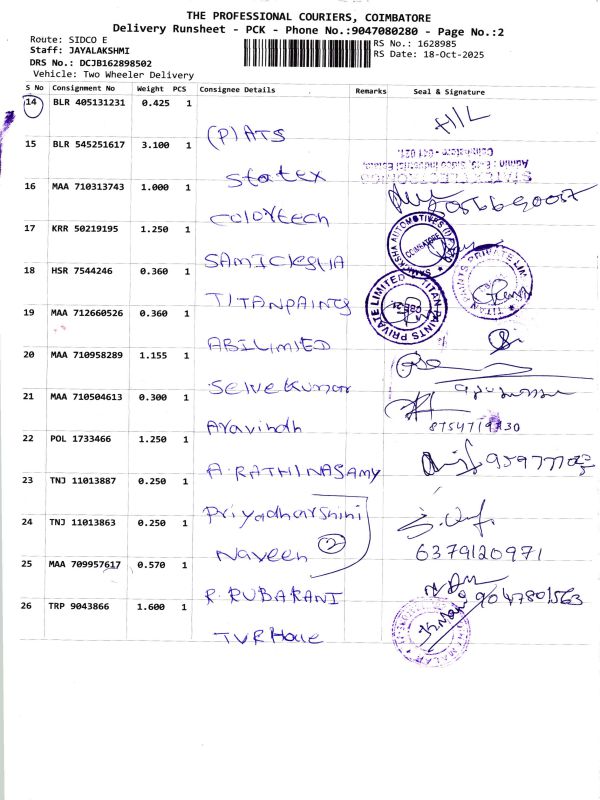 THE PROFESSIONAL COURIERS, COIMBATORE
Delivery Runsheet - PCK - Phone No.:9047080280 - Page No.:2
Route: SIDCO E
RS No.: 1628985
Staff: JAYALAKSHMI
RS Date: 18-Oct-2025
DRS No.: DCJB162898502
Vehicle: Two Wheeler Delivery
S No Consignment No Weight PCS Consignee Details Remarks Seal & Signature
14 BLR 405131231 0.425 1
(P)ATS H/L
15 BLR 545251617 3.100 1
Statex
STATEX ELECTRONICS
Coimbatore - 641 021.
16 MAA 710313743 1.000 1
Colortech
17 KRR 50219195 1.250 1
SAMICKSHA
SAMICKSHA AUTOMOTIVES (I) PVT LTD
COIMBATORE
18 HSR 7544246 0.360 1
TITANPAINTS
TITAN PAINTS PRIVATE LIMITED
TITAN PAINTS PRIVATE LIMITED
19 MAA 712660526 0.360 1
ABILIMITED
20 MAA 710958289 1.155 1
Selvekumar
21 MAA 710504613 0.300 1
Aravindh
22 POL 1733466 1.250 1
A. RATHINASAMY
23 TNJ 11013887 0.250 1
Priyadharshini
24 TNJ 11013863 0.250 1
Naveen 2
6379120971
25 MAA 709957617 0.570 1
R. RUBARANI
9047801563
26 TRP 9043866 1.600 1
TVR House